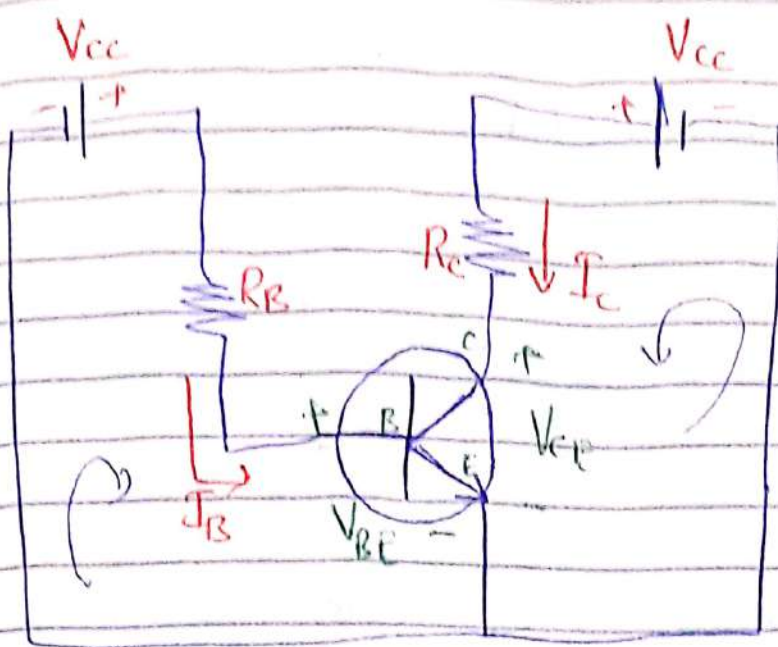 Vcc
Vcc
- +
+ -
RB
Rc
Ic
C +
+ B
VCE
E
IB
VBE -